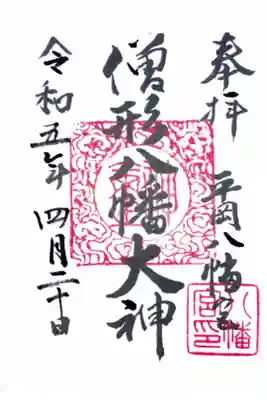 奉拝 平岡八幡宮
僧形八幡大神
令和五年 四月二十日
八幡宮印